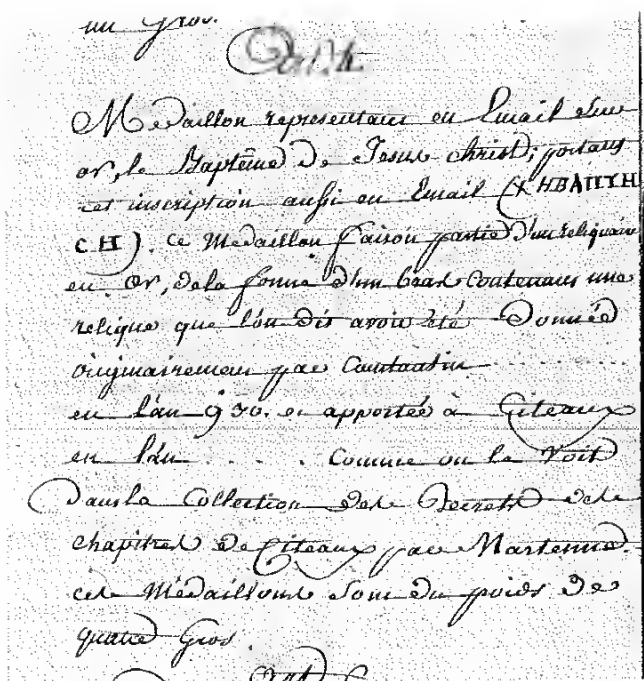 un gros.
Medaillon representant en Email sur
or, le Baptême de Jesus christ; portant
cet inscription aussi en Email (X HBAΠTYH
C H). ce Medaillon faisoit partie d'un reliquaire
en or, de la forme d'un bras contenant une
relique que l'on dit avoir été Donnée
originairement par Constantin . . . . . . . .
en l'an 930. et apportée à Citeaux
en l'an . . . . . Comme on le Voit
dans la Collection des Decrets des
chapitres de Citeaux par Martenne.
ces Médaillons sont du poids de
quatre Gros.